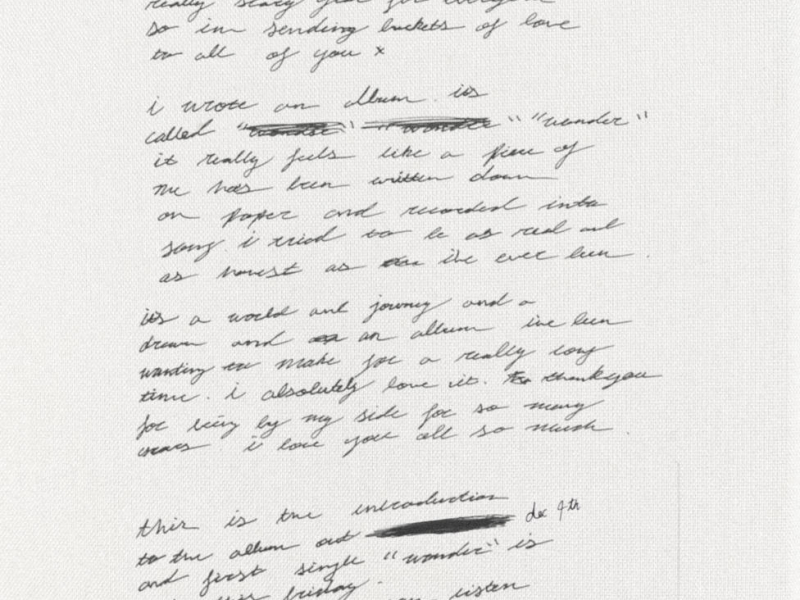 really scary year for everyone
so im sending buckets of love
to all of you x
i wrote an album. its
called "wonder" "wonder" "wonder"
it really feels like a piece of
me has been written down
on paper and recorded into
song. i tried to be as real and
as honest as ive ever been.
its a world and journey and a
dream and an album ive been
wanting to make for a really long
time. i absolutely love it. thankyou
for being by my side for so many
years. i love you all so much.
this is the introduction
to the album out dec 4th
and first single "wonder" is
friday.
listen